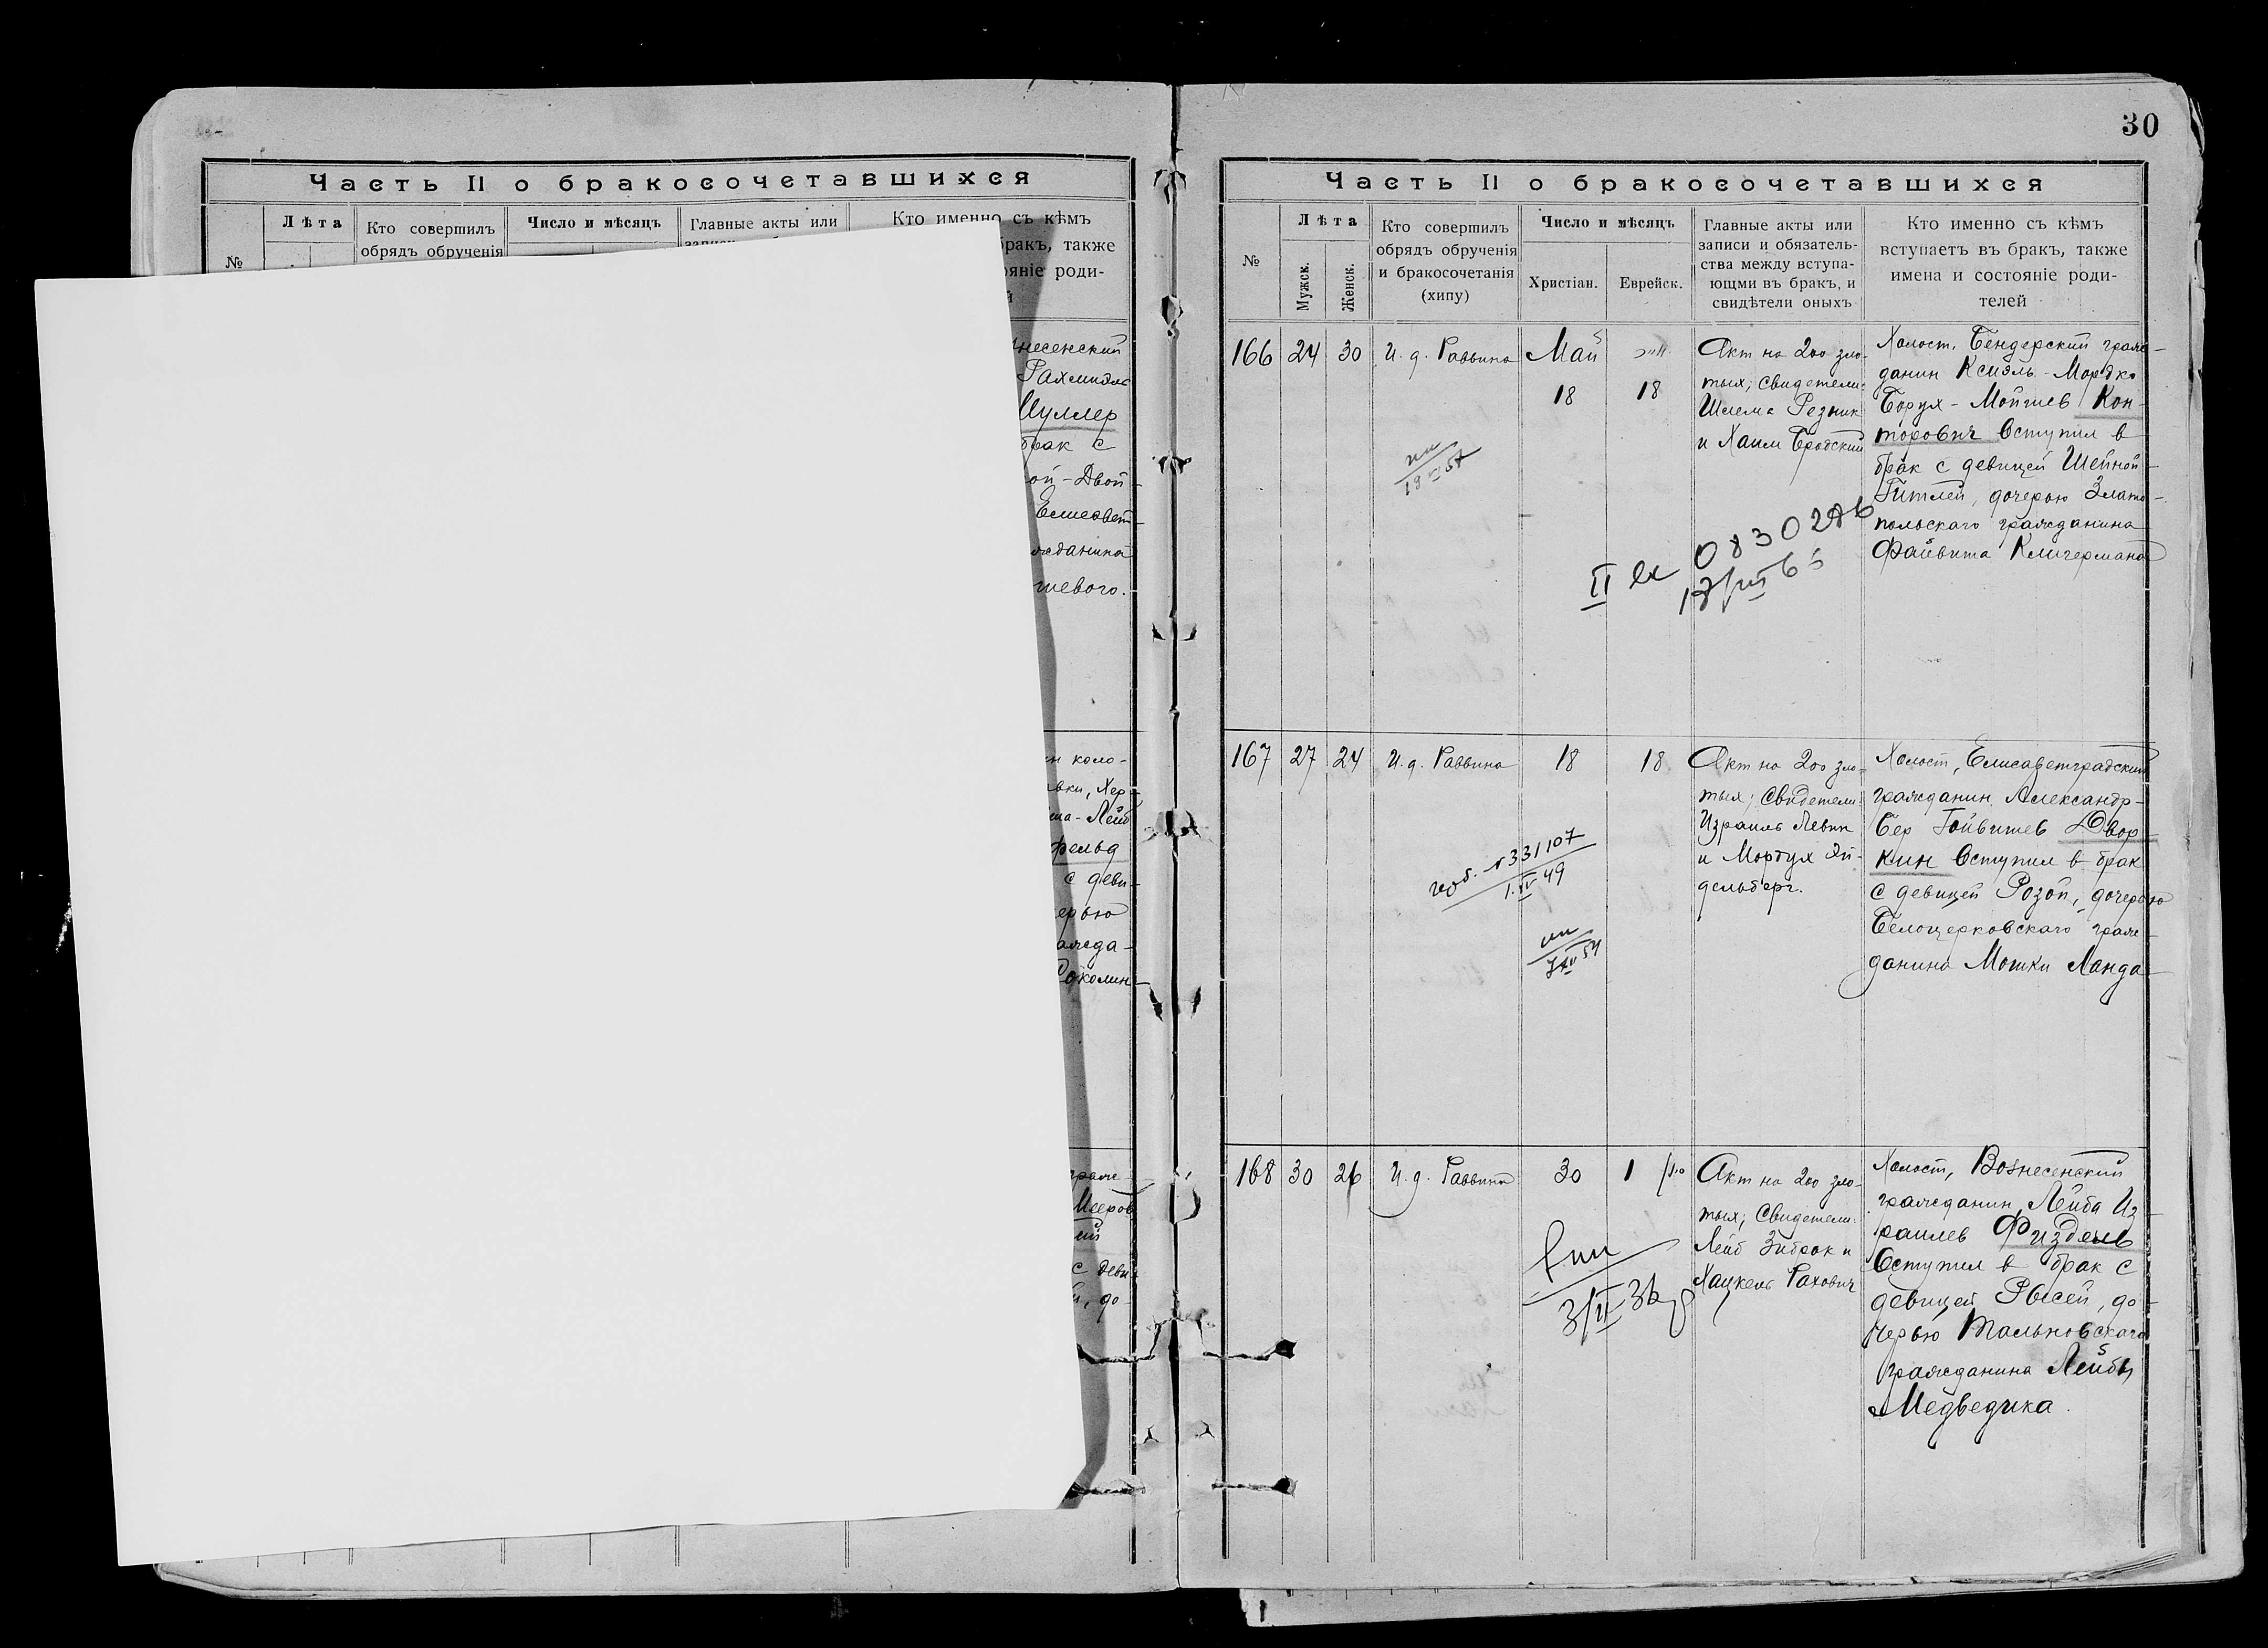 30
Часть II о бракосочетавшихся
Лѣта
Кто совершилъ
обрядъ обрученія
Число и мѣсяцъ
Главные акты или
Кто именно съ кѣмъ
бракъ, также
роди-
№
несенский
Рахмиэль
Муллер
брак с
ой-Двой-
Елисавет-
жданина
шевого.
коло-
вки, Хер-
Лейб
фельд
с деви-
ерью
ажда-
Соколин-
граж-
Мееров
ий
с деви-
до-
Часть II о бракосочетавшихся
№
Лѣта
Мужск.
Женск.
Кто совершилъ
обрядъ обрученія
и бракосочетанія
(хипу)
Число и мѣсяцъ
Христіан.
Еврейск.
Главные акты или
записи и обязатель-
ства между вступа-
ющми въ бракъ, и
свидѣтели оныхъ
Кто именно съ кѣмъ
вступаетъ въ бракъ, также
имена и состояніе роди-
телей
166 24 30 И. д. Раввина Май
18 18
Акт на 200 зло-
тых; свидетели:
Шлема Резник
и Хаим Бродский
Холост, Бендерский граж-
данин Ксиэль-Мордко
Борух-Мойшев Кон-
торович вступил в
брак с девицей Шейной-
Гитлей, дочерью Злато-
польскаго гражданина
Файвиша Клигермана
II
167 27 24 И. д. Раввина 18 18
Акт на 200 зло-
тых; свидетели:
Израиль Левин
и Мордух Эй-
дельберг.
Холост, Елисаветградский
гражданин Александр-
Бер Гойвишев Двор-
кин вступил в брак
с девицей Розой, дочерью
Белоцерковскаго граж-
данина Мошки Ланда
331107
1.IV 49
168 30 26 И. д. Раввина 30 1
Акт на 200 зло-
тых; свидетели:
Лейб Зиброк и
Хацкель Рахович
Холост, Вознесенский
гражданин, Лейба Из-
раилев Физдель
вступил в брак с
девицей Рысей, до-
черью Тальновскаго
гражданина Лейбы
Медведика.